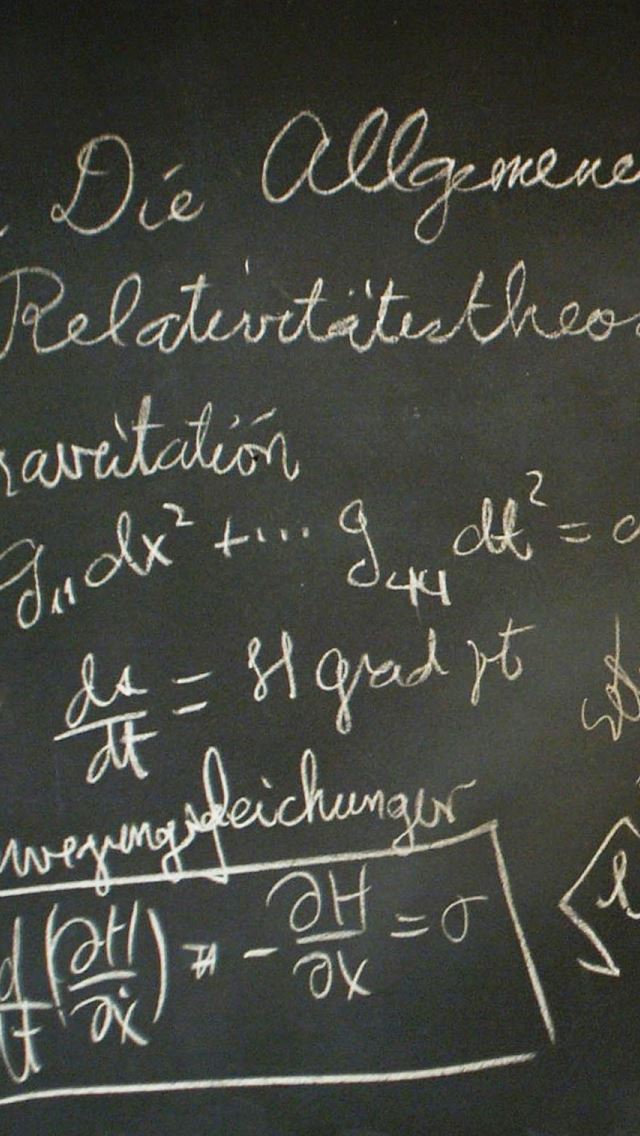 . Die Allgemeine
Relativitätstheo
ravitation
g₁₁ dx² + ... g₄₄ dt² =
ds/dt = H grad
wegungsgleichungen
d/dt (∂H/∂ẋ) = - ∂H/∂x = σ